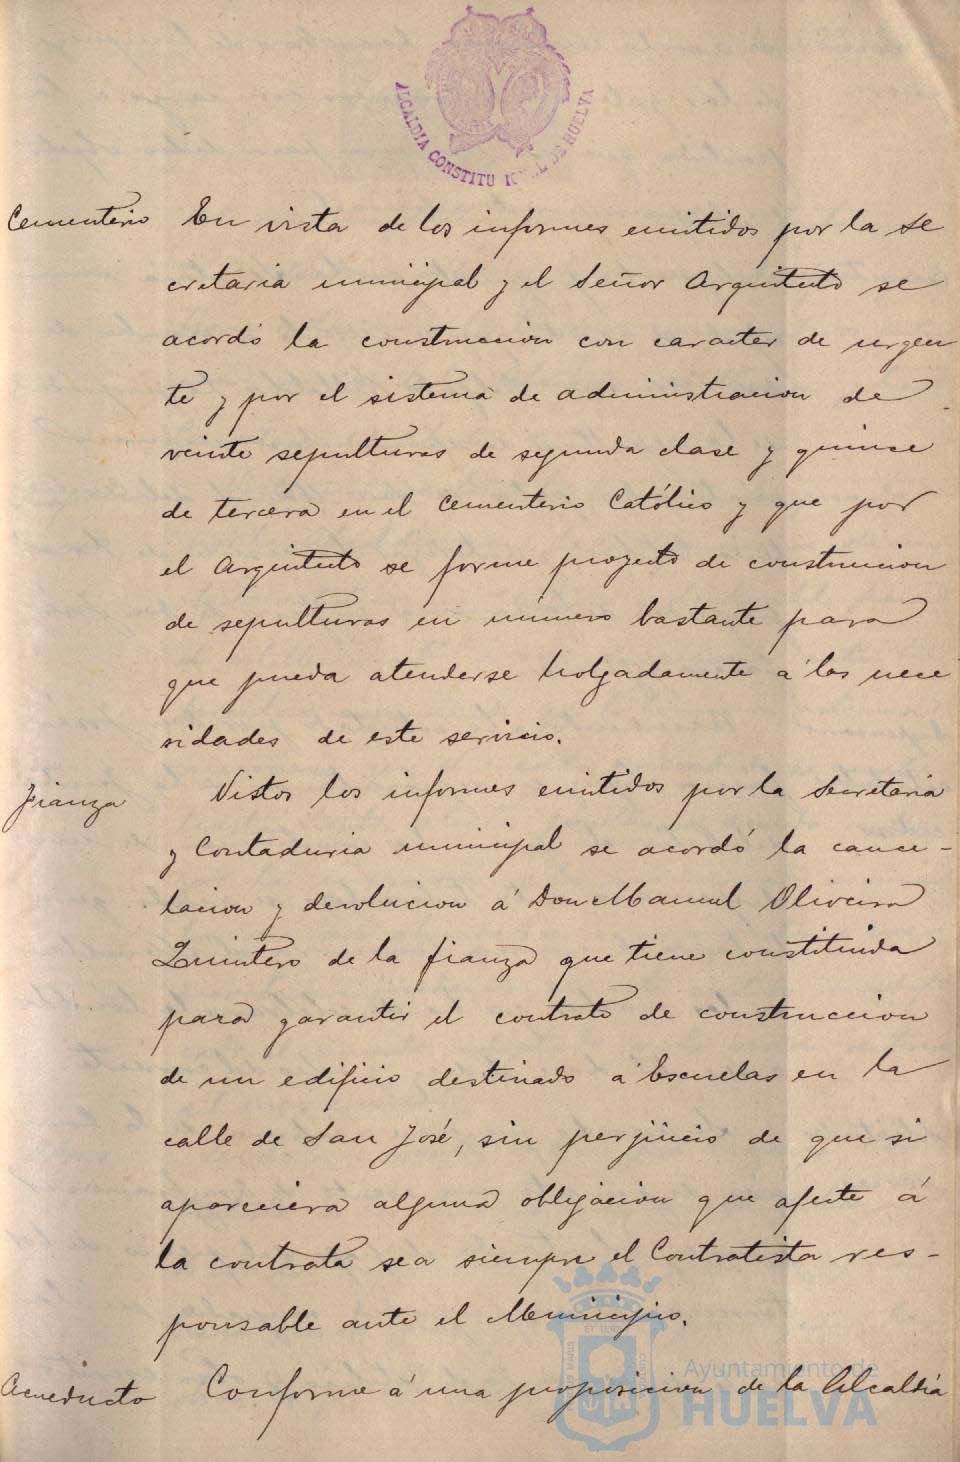 ALCALDIA CONSTITU NAL DE HUELVA
Cementerio En vista de los informes emitidos por la Se
cretaria municipal y el Señor Arquitecto se
acordó la construccion con caracter de urgen
te y por el sistema de administracion de
veinte sepulturas de segunda clase y quince
de tercera en el Cementerio Católico y que por
el Arquitecto se forme proyecto de construccion
de sepulturas en número bastante para
que pueda atenderse holgadamente á las nece
sidades de este servicio.
Fianza Vistos los informes emitidos por la Secretaria
y Contaduria municipal se acordó la cance-
lacion y devolucion á Don Manuel Oliveira
Quintero de la fianza que tiene constituida
para garantir el contrato de construccion
de un edificio destinado á Escuelas en la
calle de San José, sin perjuicio de que si
apareciera alguna obligacion que afecte á
la contrata sea siempre el Contratista res-
ponsable ante el Municipio.
Acueducto Conforme á una proposicion de la Alcaldía
Ayuntamiento de
HUELVA